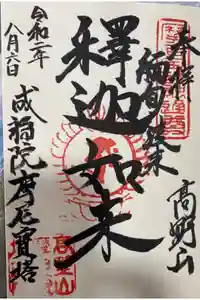 奉拝
高野山
緬甸
釋迦如来
成福院摩尼寶塔
令和二年
八月六日